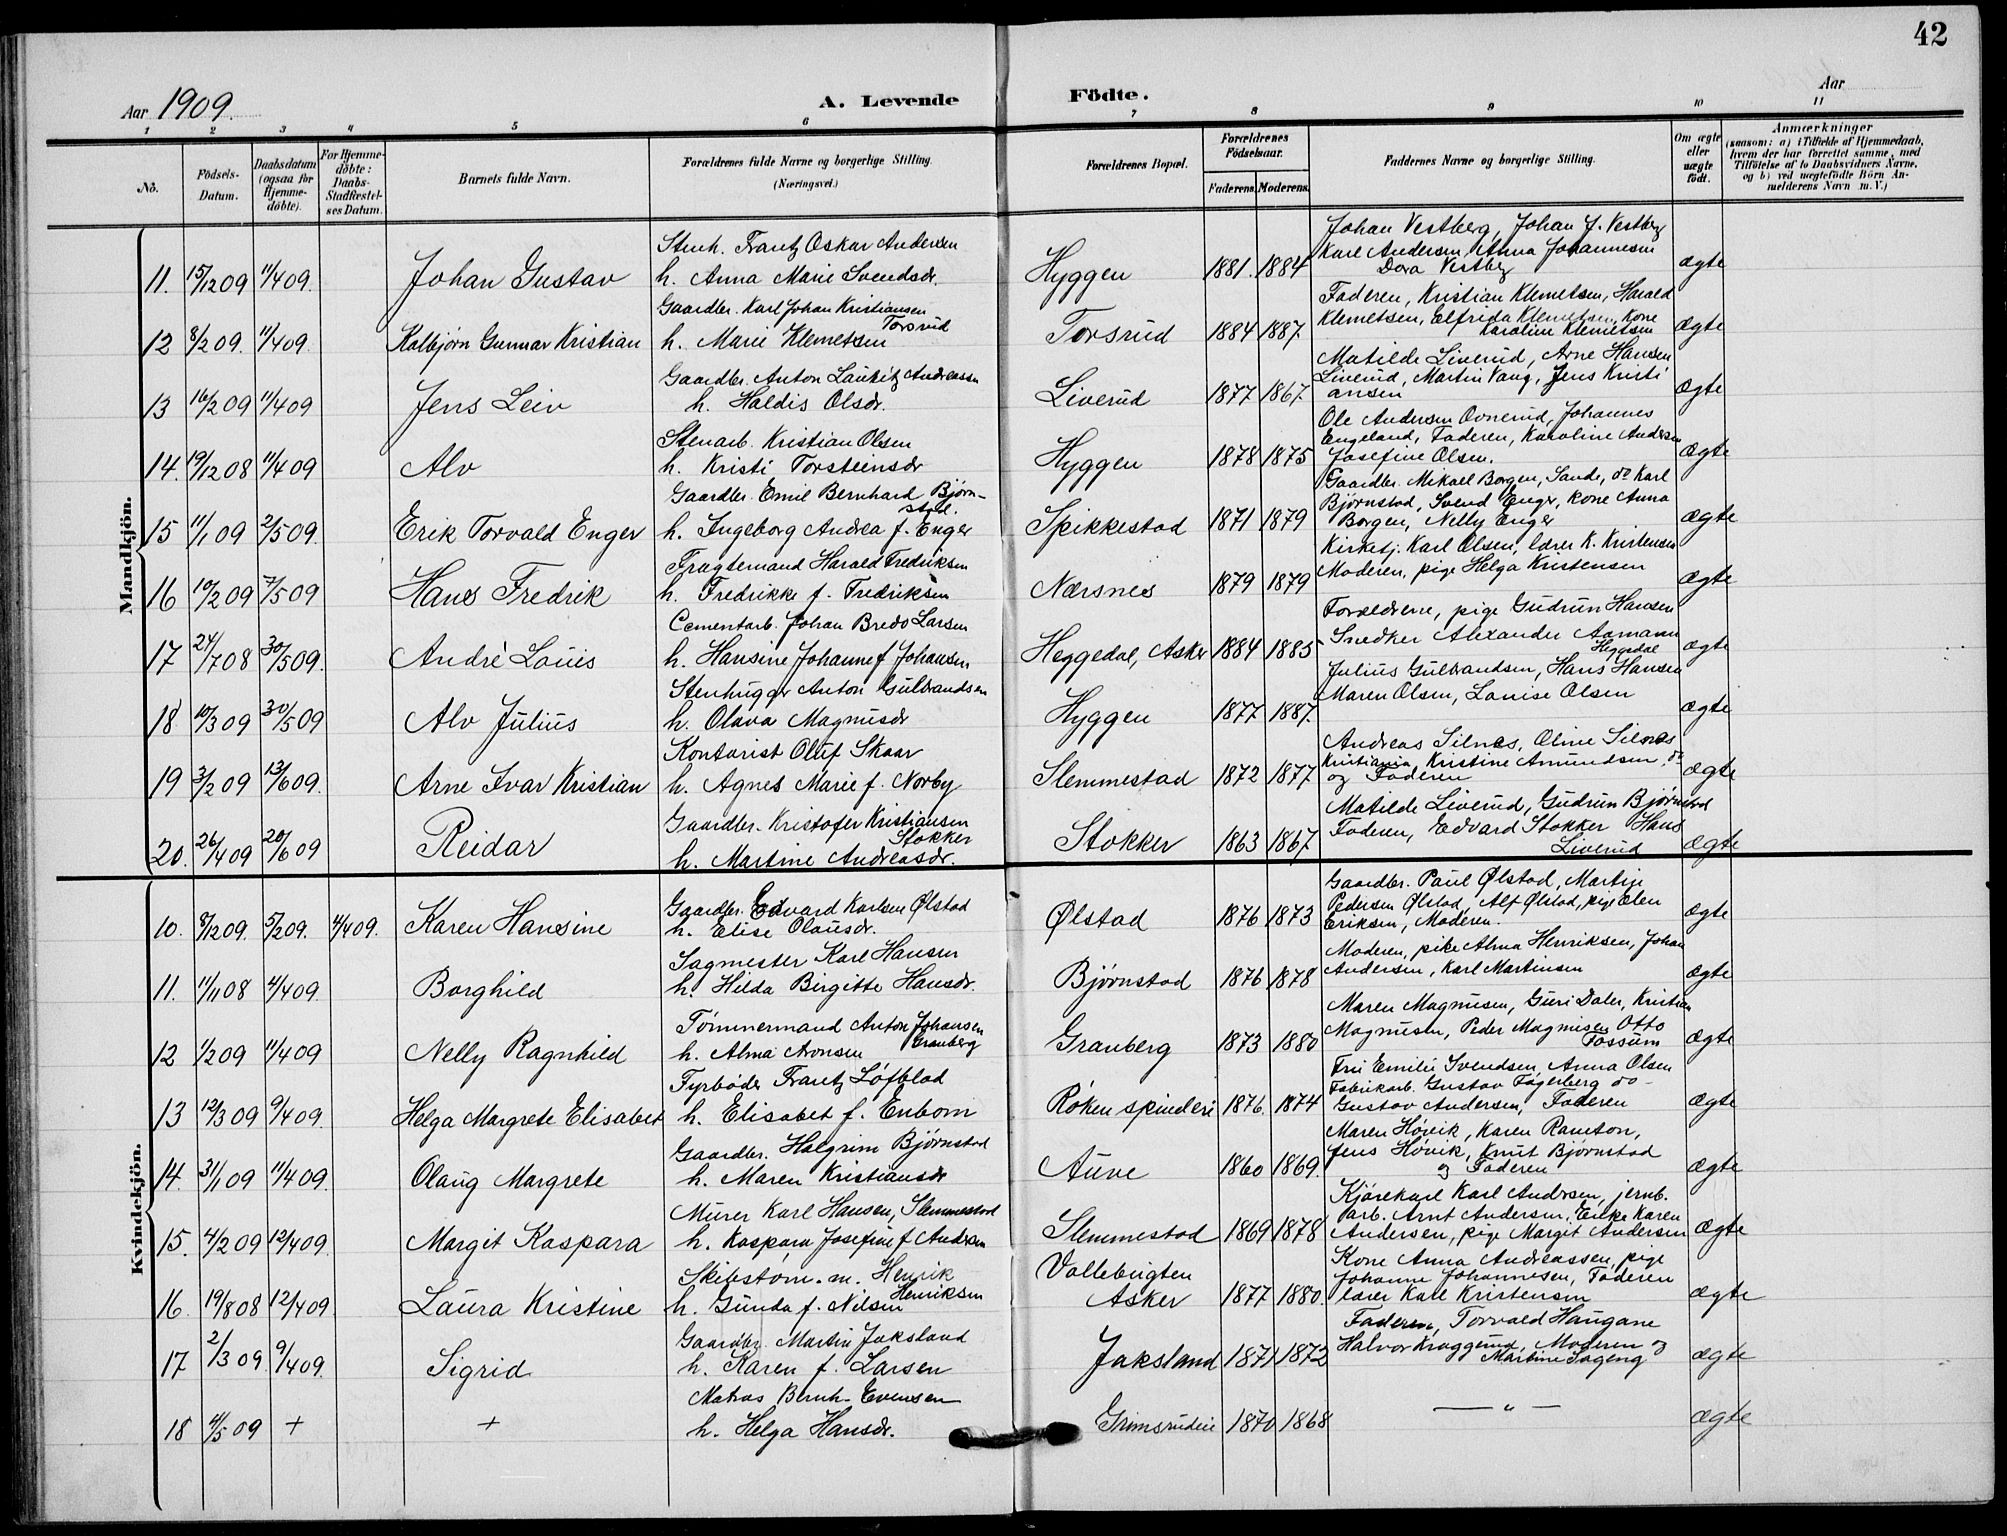 42
Aar 1909.
A. Levende Födte.
Aar
1 2 3 4 5 6 7 8 9 10 11
No.
Födsels-Datum.
Daabsdatum (ogsaa for Hjemme-döbte).
For Hjemme-döbte: Daabs-Stadfæstel-ses Datum.
Barnets fulde Navn.
Forældrenes fulde Navne og borgerlige Stilling.
(Næringsvei.)
Forældrenes Bopæl.
Forældrenes Födselsaar.
Faderens. Moderens.
Faddernes Navne og borgerlige Stilling.
Om ægte eller uægte födt.
Anmærkninger
(saasom: a) i Tilfælde af Hjemmedaab, hvem der har forrettet samme, med Tilföielse af to Daabsvidners Navne, og b) ved uægtefödte Börn An-melderens Navn m. V.)
Mandkjön.
11. 15/12 09 11/4 09. Johan Gustav
Stenh. Frantz Oskar Andersen
h. Anna Marie Svendsdr.
Hyggen 1881. 1884
Johan Vestberg, Johan J. Vestberg
Karl Andersen, Anna Johannesen
Dora Vestberg
ægte
12 8/2 09. 11/4 09. Kolbjørn Gunnar Kristian
Gaardbr. Karl Johan Kristiansen
Torsrud
h. Marie Klemetsen
Torsrud 1884 1887.
Faderen, Kristian Klemetsen, Harald
Klemetsen, Elfrida Klemetsen, Kone
Karoline Klemetsen
ægte
13 16/2 09 11/4 09 Jens Leiv
Gaardbr. Anton Lauritz Andreassen
h. Haldis Olsdr.
Liverud 1877 1867.
Matilde Liverud, Arne Hansen
Liverud, Martin Vang, Jens Kristi
ansen
ægte
14. 19/12 08 11/4 09 Alv
Stenarb. Kristian Olsen
h. Kristi Torsteinsdr
Hyggen 1878 1875
Ole Andersen Ovnerud, Johannes
Engeland, Faderen, Karoline Andersen
Josefine Olsen.
ægte
15 11/1 09 2/5 09. Erik Torvald Enger
Gaardbr. Emil Bernhard Bjørn-
stad.
h. Ingeborg Andrea f. Enger
Spikkestad 1871 1879
Gaardbr. Mikael Borgen, Sande, do Karl
Bjørnstad, Svend Enger, Kone Anna
Borgen, Nelly Enger
ægte
16 10/2 09 7/5 09 Hans Fredrik
Fragtemand Harald Fredriksen
h. Fredrikke f. Fredriksen
Nærsnes 1879 1879
Kirketj. Karl Olsen, lærer K. Kristensen
Moderen, pige Helga Kristensen
ægte
17 24/7 08 30/5 09. André Louis
Cementarb. Johan Bredo Larsen
h. Hansine Johanne f Johansen
Heggedal, Asker 1884 1885
Forældrene, pige Gudrun Hansen
Snedker Alexander Aamann
Heggedal
ægte
18 10/3 09 30/5 09 Alv Julius
Stenhugger Anton Gulbrandsen
h. Olava Magnusdr
Hyggen 1877 1887.
Julius Gulbrandsen, Hans Hansen
Maren Olsen, Louise Olsen
ægte
19 3/2 09 13/6 09. Arne Ivar Kristian
Kontorist Oluf Skaar
h. Agnes Marie f. Norby
Slemmestad 1872 1877
Andreas Silnes, Oline Silnes
Kristiania, Kristine Amundsen, do
og Faderen
ægte
20. 26/4 09 20/6 09 Reidar
Gaardbr. Kristofer Kristiansen
Stokker
h. Martine Andreasdr.
Stokker 1863 1867
Matilde Liverud, Gudrun Bjørnstad
Faderen, Edvard Stokker Hans
Liverud
ægte
Kvindekjön.
10. 8/12 09. 5/2 09. 4/4 09. Karen Hansine
Gaardbr. Edvard Karlsen Ølstad
h. Elise Olausdr.
Ølstad 1876 1873
Gaardbr. Paul Ølstad, Martin
Pedersen Ølstad, Alf Ølstad, pige Elen
Eriksen, Moderen.
ægte
11. 11/11 08 4/4 09. Borghild
Sagmester Karl Hansen
h. Hilda Birgitte Hansdr.
Bjørnstad 1876 1878
Moderen, pike Alma Henriksen, Johan
Andersen, Karl Martinsen
ægte
12 1/2 09 11/4 09 Nelly Ragnhild
Tømmermand Anton Johansen
Granberg
h. Alma Aronsen
Granberg 1873 1880
Maren Magnusen, Guri Daler, Kristian
Magnusen, Peder Magnusen Otto
Fossum
ægte
13 12/3 09 9/4 09. Helga Margrete Elisabet
Fyrbøder Frantz Løfblad
h. Elisabet f. Enbom
Røken spinderi 1876. 1874
Fru Emilie Svendsen, Anna Olsen
Fabrikarb. Gustav Fagerberg do-
Gustav Andersen, Faderen
ægte
14. 31/1 09 11/4 09. Olaug Margrete
Gaardbr. Halgrim Bjørnstad
h. Maren Kristiansdr
Auve 1860 1869.
Maren Høvik, Karen Ramton,
Jens Høvik, Knut Bjørnstad
og Faderen
ægte
15. 4/2 09 12/4 09. Margit Kaspara
Murer Karl Hansen, Slemmestad
h. Kaspara Josefine f Andersen
Slemmestad 1869 1878
Kjørekarl Karl Andersen, jernb.
arb. Arnt Andersen, Enke Karen
Andersen, pige Margit Andersen
ægte
16. 19/8 08 12/4 09. Laura Kristine
Skibstøm. m. Henrik
Henriksen
h. Gunda f. Nilsen
Vollebugten
Asker 1877 1880.
Kone Anna Andreassen, pige
Johanne Johannesen, Faderen
lærer Karl Kristensen
ægte
17 2/3 09 9/4 09. Sigrid
Gaardbr. Martin Jaksland
h. Karen f. Larsen
Jaksland 1871 1872
Faderen, Torvald Haugane
Halvor Kraggerud, Moderen og
Martine Sageng
ægte
18 4/5 09 + +
Matros Bernh. Evensen
h. Helga Hansdr.
Grimsrudeie 1870 1868
— " —
ægte